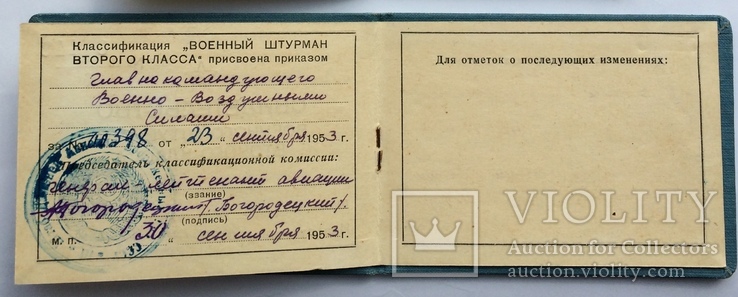 Классификация „ВОЕННЫЙ ШТУРМАН
ВТОРОГО КЛАССА" присвоена приказом
Главнокомандующего
Военно-Воздушными
Силами
за № 0398 от „23" сентября 1953 г.
Председатель классификационной комиссии:
генерал-лейтенант авиации
(звание)
/Богородецкий/.
(подпись)
М. П. „30" сентября 1953 г.
Для отметок о последующих изменениях:
VIOLITY
Auction for Collectors
auction.violity.com